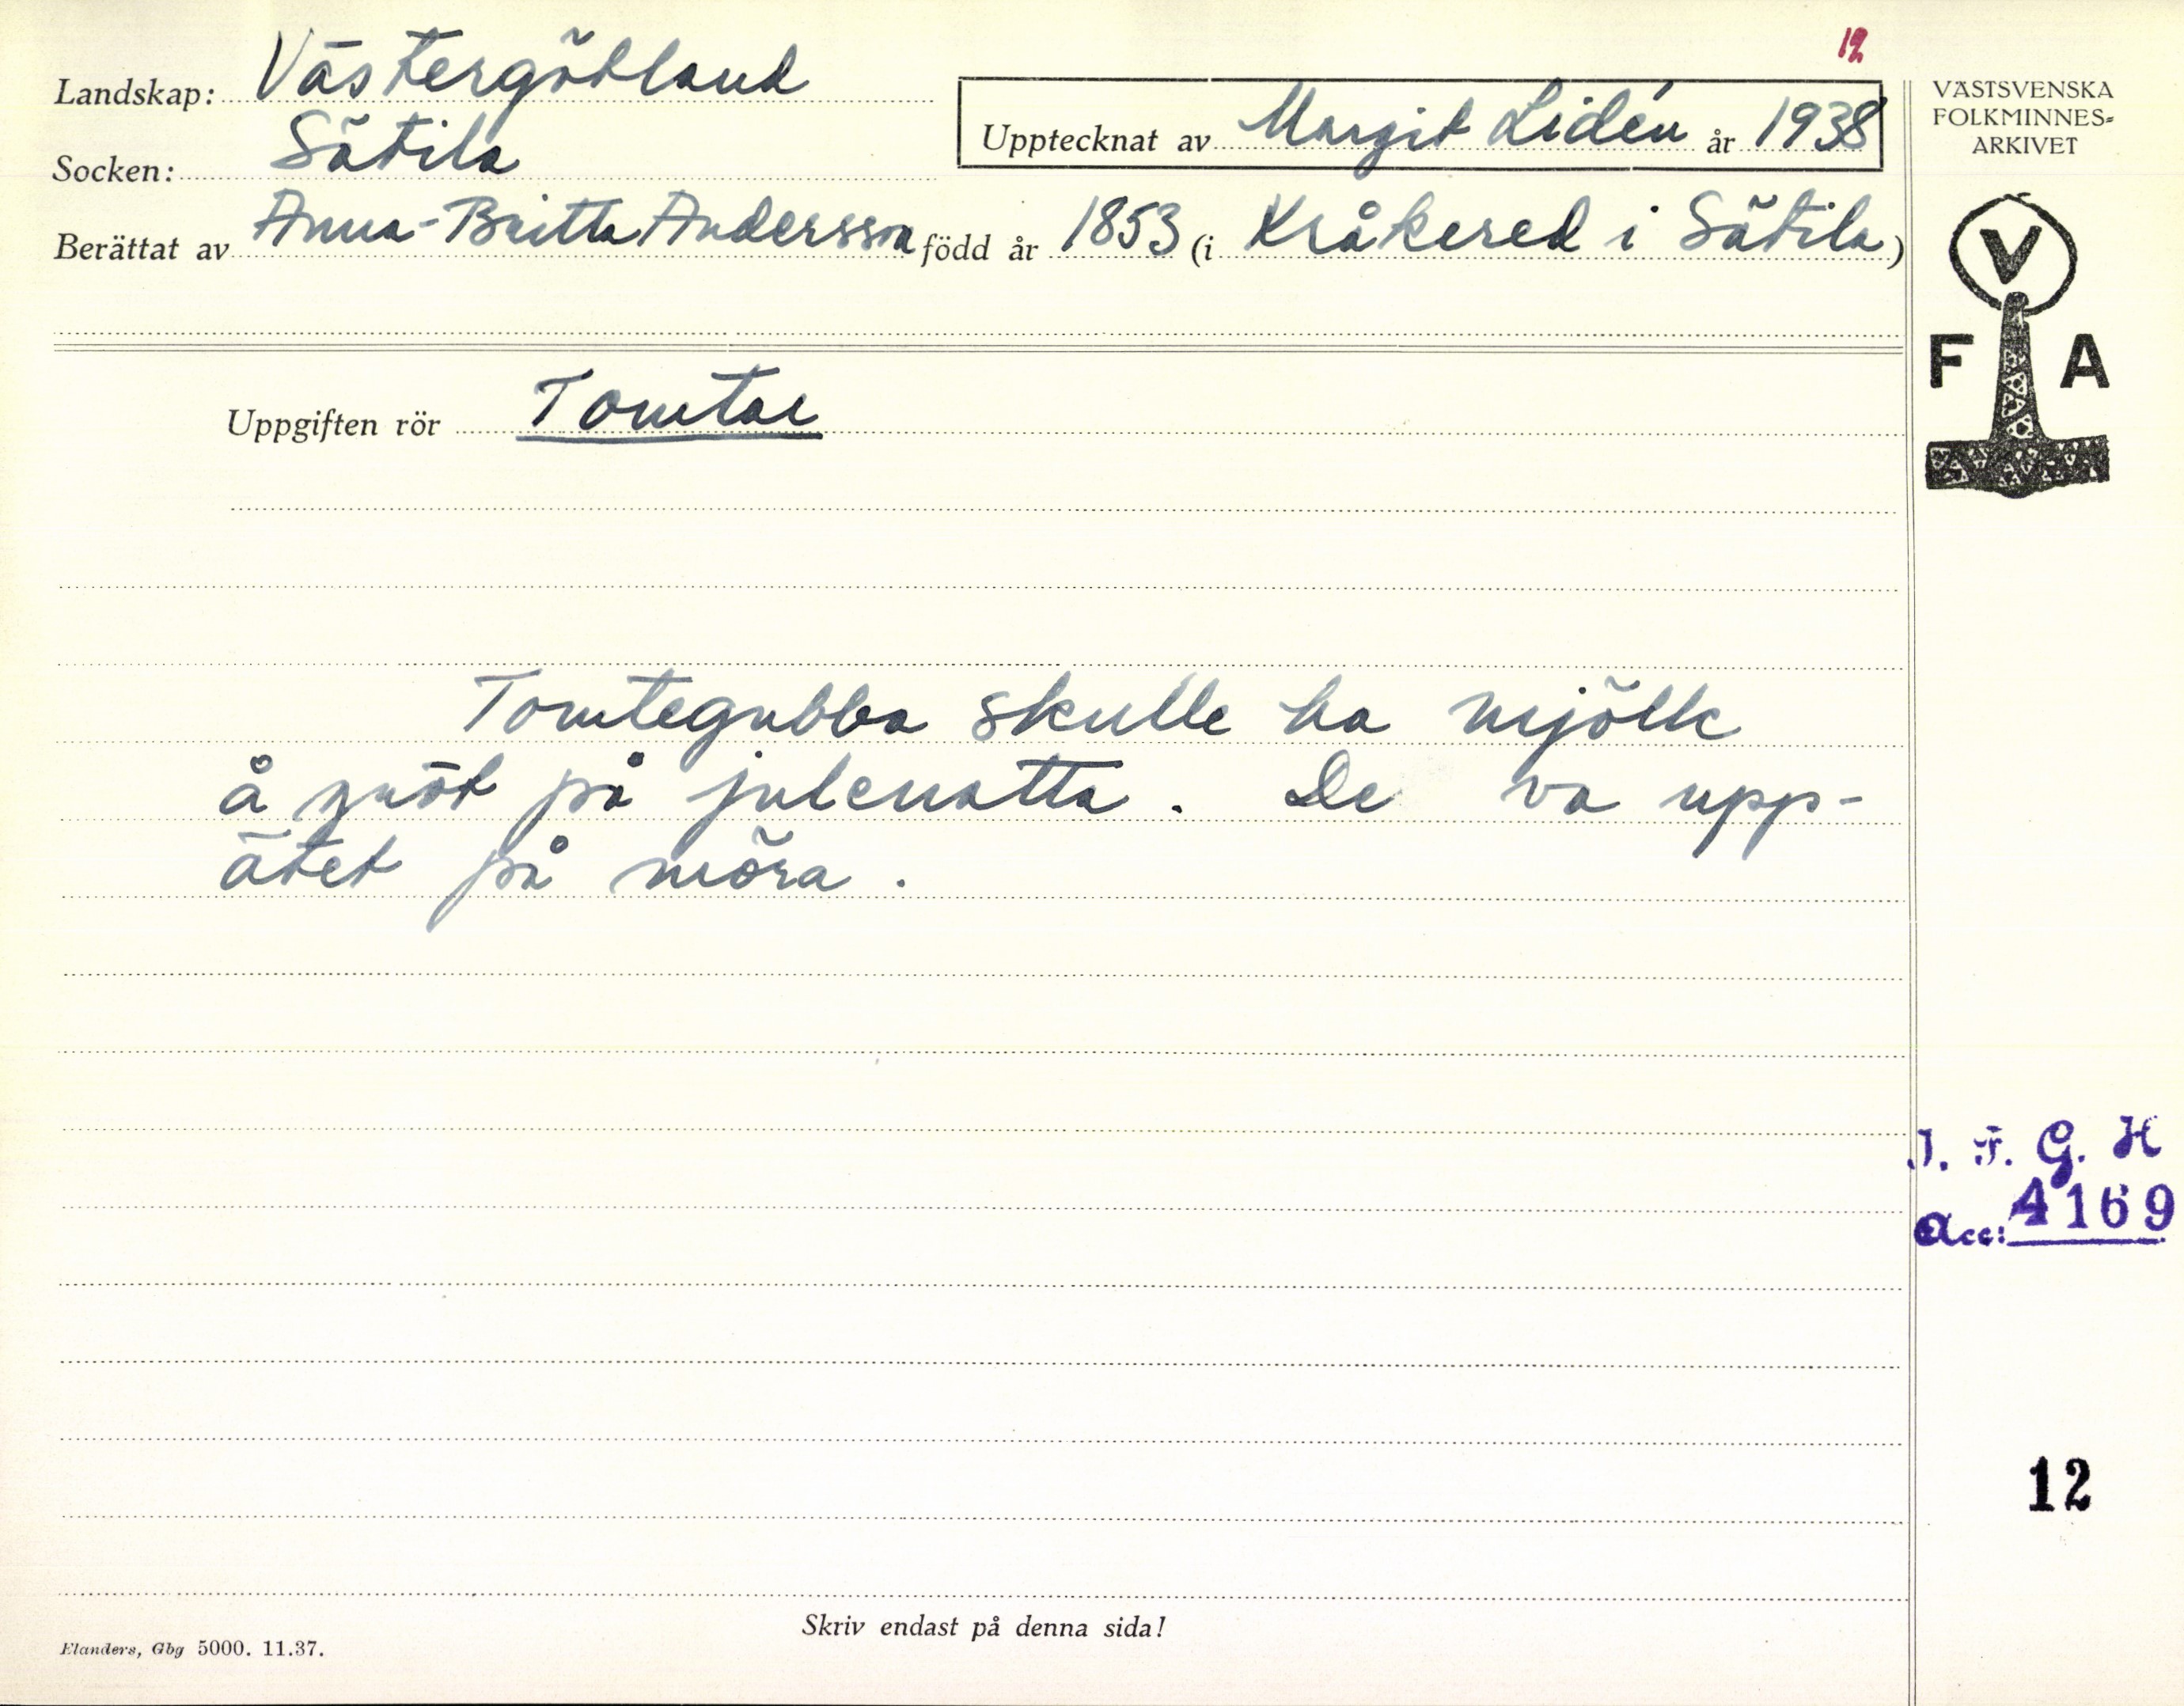 12
Landskap: Västergötland
Socken: Sätila
Upptecknat av Margit Lidén år 1938
Berättat av Anna-Britta Andersson född år 1853 (i Kråkered i Sätila)
VÄSTSVENSKA
FOLKMINNES=
ARKIVET
V
F A
Uppgiften rör Tomtar
Tomtegubba skulle ha mjölk
å gröt på julenatta. De va upp-
ätet på möra.
I. F. G. H
Acc: 4169
12
Skriv endast på denna sida!
Elanders, Gbg 5000. 11.37.